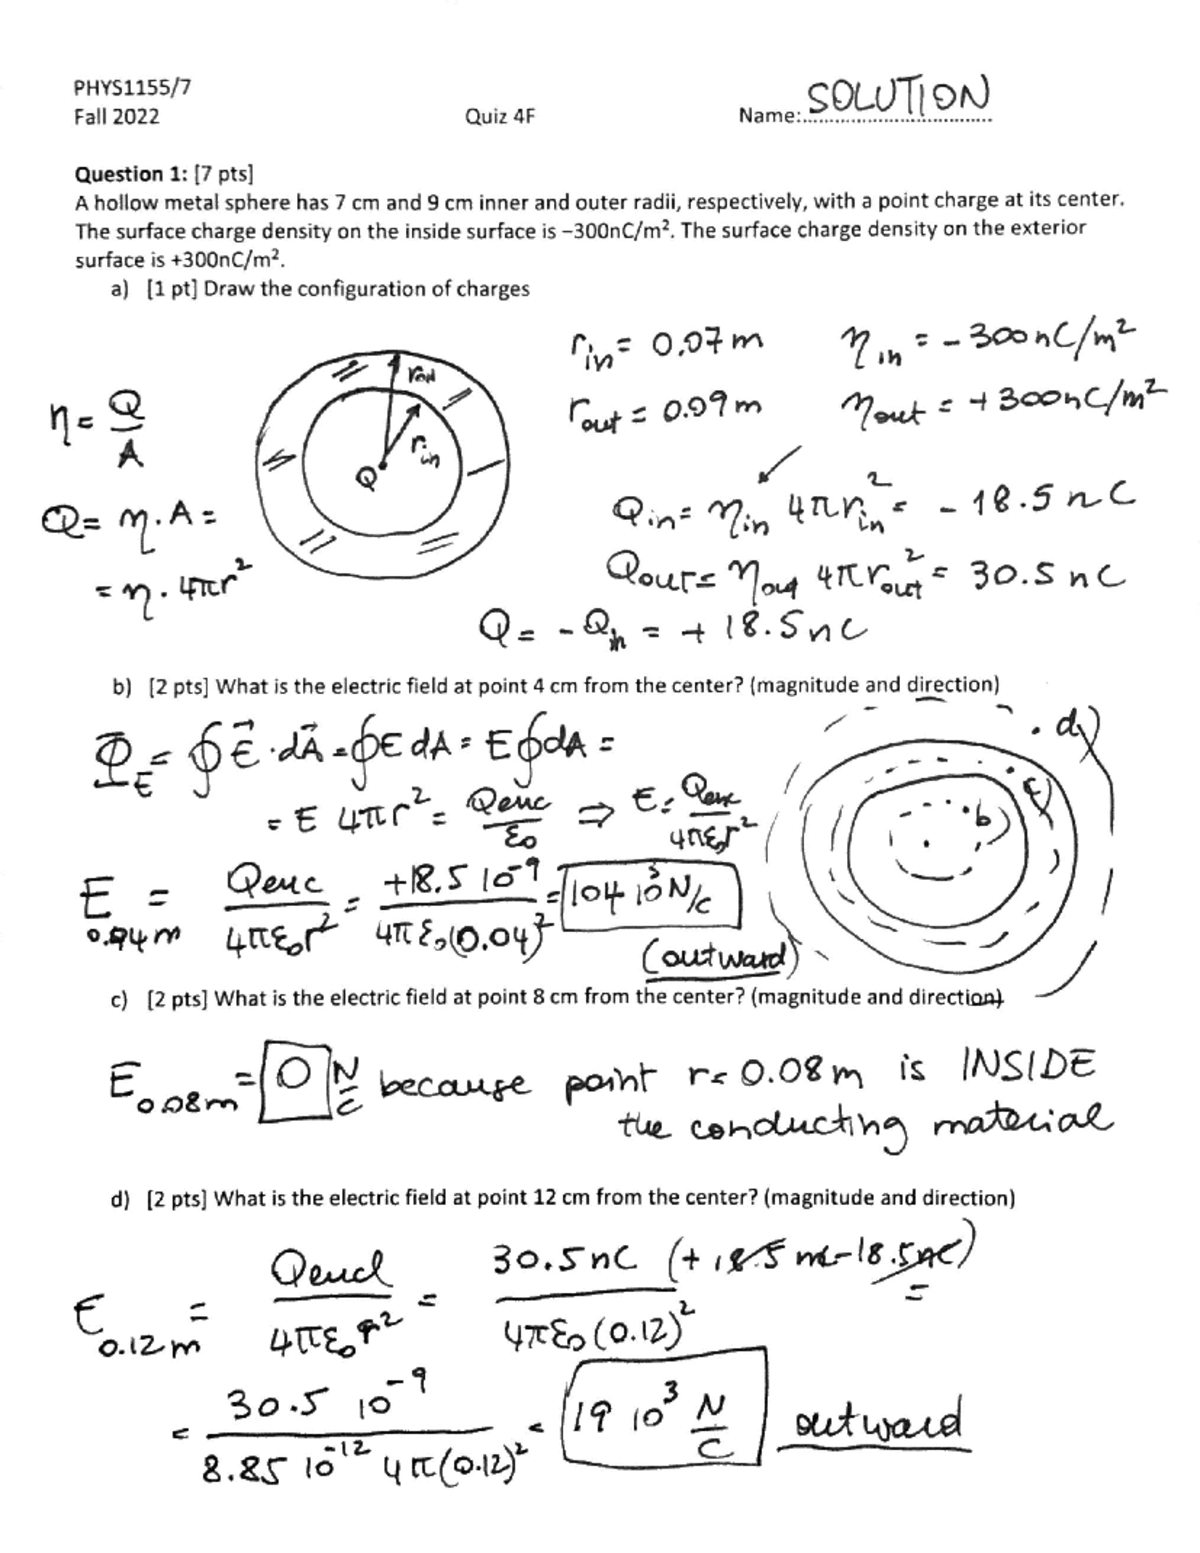 PHYS1155/7
Fall 2022
Quiz 4F
Name: SOLUTION
Question 1: [7 pts]
A hollow metal sphere has 7 cm and 9 cm inner and outer radii, respectively, with a point charge at its center.
The surface charge density on the inside surface is −300nC/m². The surface charge density on the exterior
surface is +300nC/m².
a) [1 pt] Draw the configuration of charges
r_in = 0.07 m η_in = - 300 nC/m²
r_out = 0.09 m η_out = + 300 nC/m²
η = Q/A
r_out
r_in
Q
Q = η·A =
= η·4πr²
Q_in = η_in 4πr_in² = - 18.5 nC
Q_out = η_out 4πr_out² = 30.5 nC
Q = - Q_in = + 18.5 nC
b) [2 pts] What is the electric field at point 4 cm from the center? (magnitude and direction)
Φ_E = ∮E⃗·dA⃗ = ∮E dA = E∮dA =
= E 4πr² = Qenc/ε₀ ⇒ E = Qenc/4πε₀r²
.d)
c)
b)
E_0.04m = Qenc/4πε₀r² = +18.5 10⁻⁹/4πε₀(0.04)² = 104 10³ N/C
(outward)
c) [2 pts] What is the electric field at point 8 cm from the center? (magnitude and direction)
E_0.08m = 0 N/C because point r = 0.08 m is INSIDE
the conducting material
d) [2 pts] What is the electric field at point 12 cm from the center? (magnitude and direction)
E_0.12m = Qencl/4πε₀r² = 30.5 nC (+ 18.5 nC - 18.5 nC)/4πε₀(0.12)² =
= 30.5 10⁻⁹/8.85 10⁻¹² 4π(0.12)² = 19 10³ N/C outward